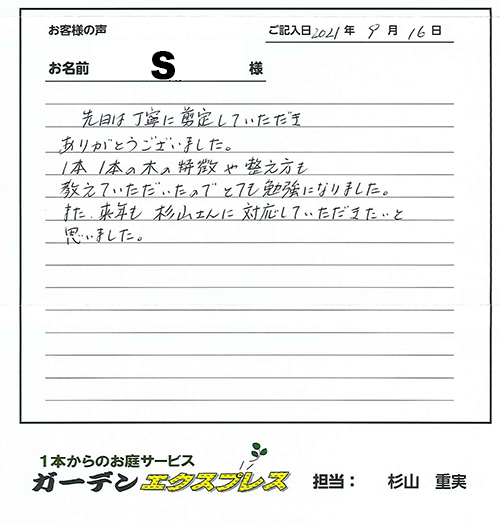 お客様の声
ご記入日2021年 9月 16日
お名前 S 様
先日は丁寧に剪定していただき
ありがとうございました。
1本1本の木の特徴や整え方も
教えていただいたのでとても勉強になりました。
また、来年も 杉山さんに対応していただきたいと
思いました。
1本からのお庭サービス
ガーデンエクスプレス 担当： 杉山 重実